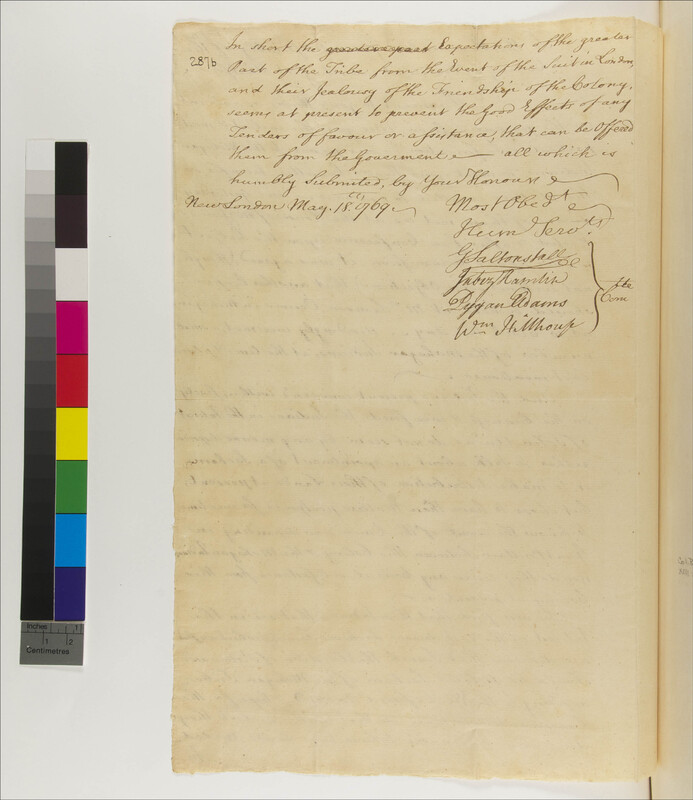 287b
In short the Expectations of the greater
Part of the Tribe from the Event of the Suit in London,
and their Jealousy of the Friendship of the Colony,
seems at present to prevent the Good Effects of any
Tenders of favour or assistance, that can be Offered
them from the Goverment — all which is
humbly Submited, by Your Honours
New London May. 18. 1769.
Most Obedt
Hum Servts
G Saltonstall
Jabez Hamlin
Pygan Adams
Wm Hillhouse
Com tte
Inches 1
1 2
Centimetres